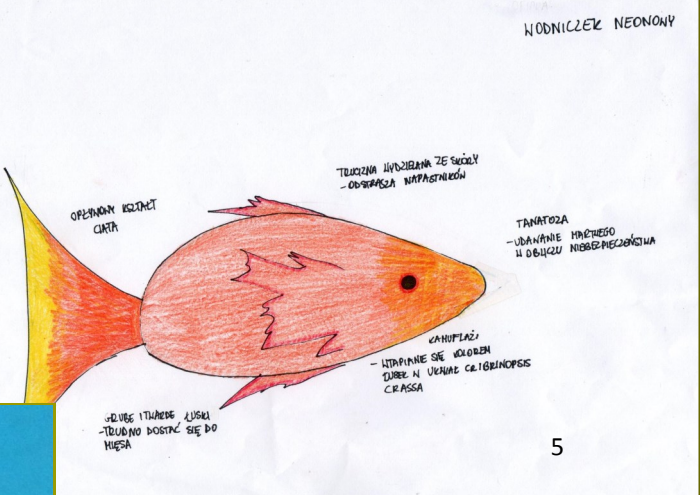 WODNICZEK NEONOWY
TRUCIZNA WYDZIELANA ZE SKÓRY
- ODSTRASZA NAPASTNIKÓW
OPŁYWOWY KSZTAŁT
CIAŁA
TANATOZA
- UDAWANIE MARTWEGO
W OBLICZU NIEBEZPIECZEŃSTWA
KAMUFLAŻ:
- WTAPIANIE SIĘ KOLOREM
W UKWIAŁ CRIBRINOPSIS
CRASSA
GRUBE I TWARDE ŁUSKI
- TRUDNO DOSTAĆ SIĘ DO
MIĘSA
5